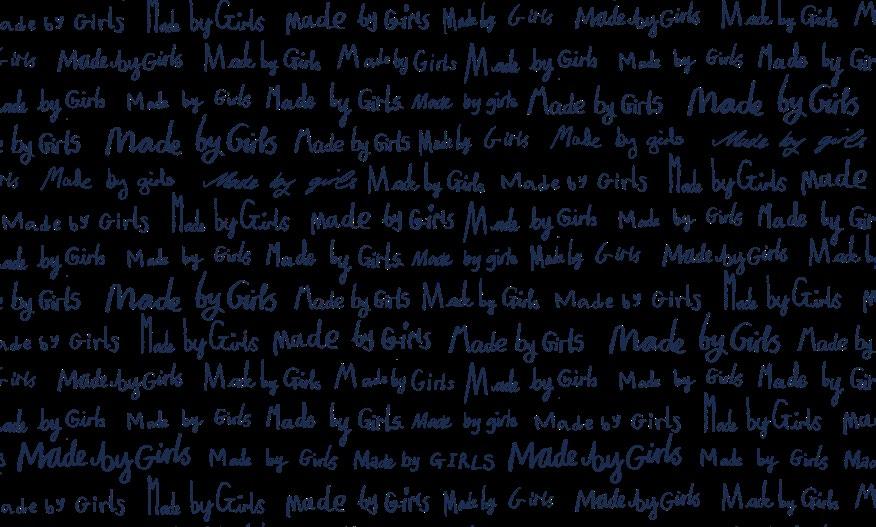 ade by Girls Made by Girls Made by Girls Made by Girls Made by Girls Made by Girls M
Girls Made by Girls Made by Girls Made by Girls Made by Girls Made by Girls Made by Gir
ade by Girls Made by Girls Made by Girls Made by girls Made by Girls Made by Girls
by Girls Made by Girls Made by Girls Made by Girls Made by girls Made by girls
rls Made by girls Made by girls Made by Girls Made by Girls Made by Girls Made
Made by Girls Made by Girls Made by Girls Made by Girls Made by Girls Made by Gir
ade by Girls Made by Girls Made by Girls Made by girls Made by Girls Made by Girls Made by
by Girls Made by Girls Made by Girls Made by Girls Made by Girls Made by Girls
ade by Girls Made by Girls Made by Girls Made by Girls Made by Girls Made by
Girls Made by Girls Made by Girls Made by Girls Made by Girls Made by Girls Made by Gir
ade by Girls Made by Girls Made by Girls Made by girls Made by Girls Made by Girls Ma
Made by Girls Made by Girls Made by GIRLS Made by Girls Made by Girls Mad
ade by Girls Made by Girls Made by Girls Made by Girls Made by Girls Made by Girls M